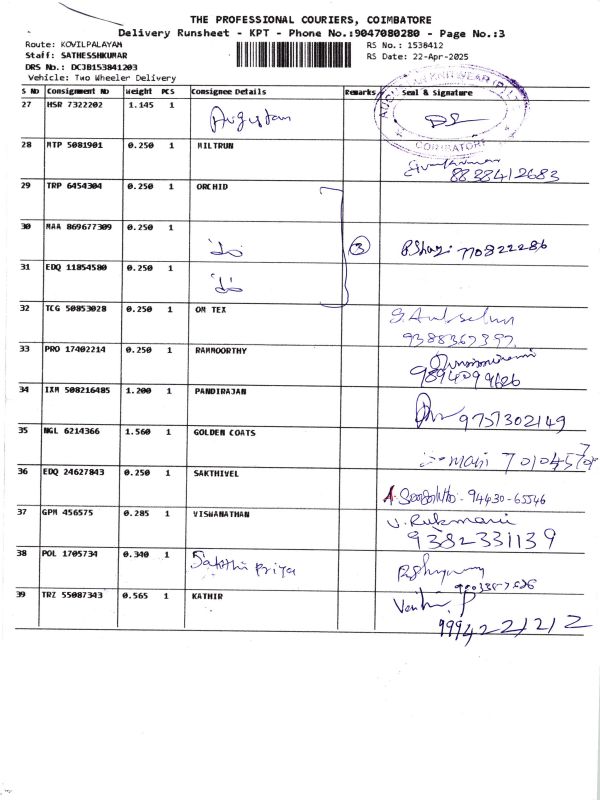 THE PROFESSIONAL COURIERS, COIMBATORE
Delivery Runsheet - KPT - Phone No.:9047080280 - Page No.:3
Route: KOVILPALAYAM RS No.: 1538412
Staff: SATHESSHKUMAR RS Date: 22-Apr-2025
DRS No.: DCJB153841203
Vehicle: Two Wheeler Delivery
S No Consignment No Weight PCS Consignee Details Remarks Seal & Signature
27 HSR 7322202 1.145 1
COIMBATORE
28 MTP 5081901 0.250 1 MILTRUN
8838412683
29 TRP 6454304 0.250 1 ORCHID
30 MAA 869677309 0.250 1 3
31 EDQ 11854580 0.250 1
32 TCG 50853028 0.250 1 OM TEX
9388367397
33 PRO 17402214 0.250 1 RAMMOORTHY
34 IXM 508216485 1.200 1 PANDIRAJAN 9751302149
35 NGL 6214366 1.560 1 GOLDEN COATS
36 EDQ 24627843 0.250 1 SAKTHIVEL
94430-65546
37 GPM 456575 0.285 1 VISWANATHAN V. Rukmani
9382331139
38 POL 1705734 0.340 1 Sakthi Priya
39 TRZ 55087343 0.565 1 KATHIR
9994221212